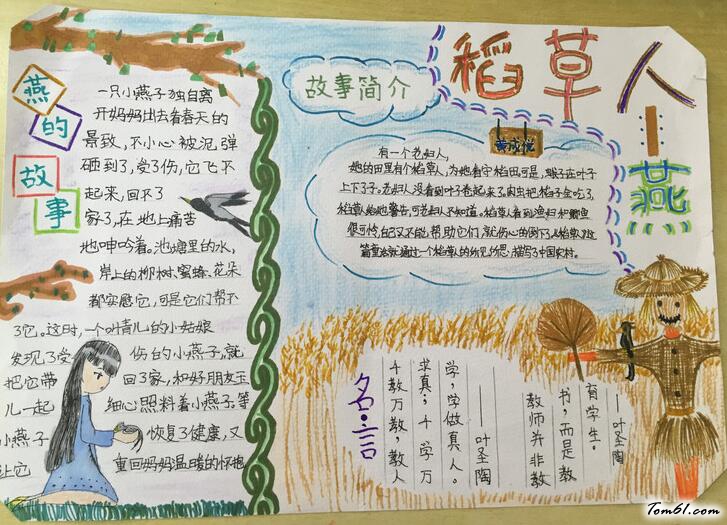 稻草人
燕
燕的故事
一只小燕子独自离
开妈妈出去看春天的
景致,不小心被泥弹
砸到了,受了伤,它飞不
起来,回不了
家了,在地上痛苦
地呻吟着。池塘里的水,
岸上的柳树,蜜蜂、花朵
都安慰它,可是它们帮不
了它。这时,一个叫青儿的小姑娘
发现了受伤的小燕子,就
把它带回了家,和好朋友玉
儿一起细心照料着小燕子。等
小燕子恢复了健康,又
让它重回妈妈温暖的怀抱
故事简介
有一个老妇人,
她的田里有个稻草人,为她看守稻田可是,蛾子在叶子
上下了子。老妇人没看到叶子卷起来了肉虫把稻子全吃了,
稻草人给她警告,可老妇人不知道。稻草人看到渔妇和鲫鱼
很可怜,自己又不能帮助它们,就伤心的倒下了
通过一个稻草人的所见所思,描写了中国农村。
名言
千教万教,教人
求真;千学万
学,学做真人。
——叶圣陶
教师并非教
书,而是教
育学生。
——叶圣陶
Tom61.com